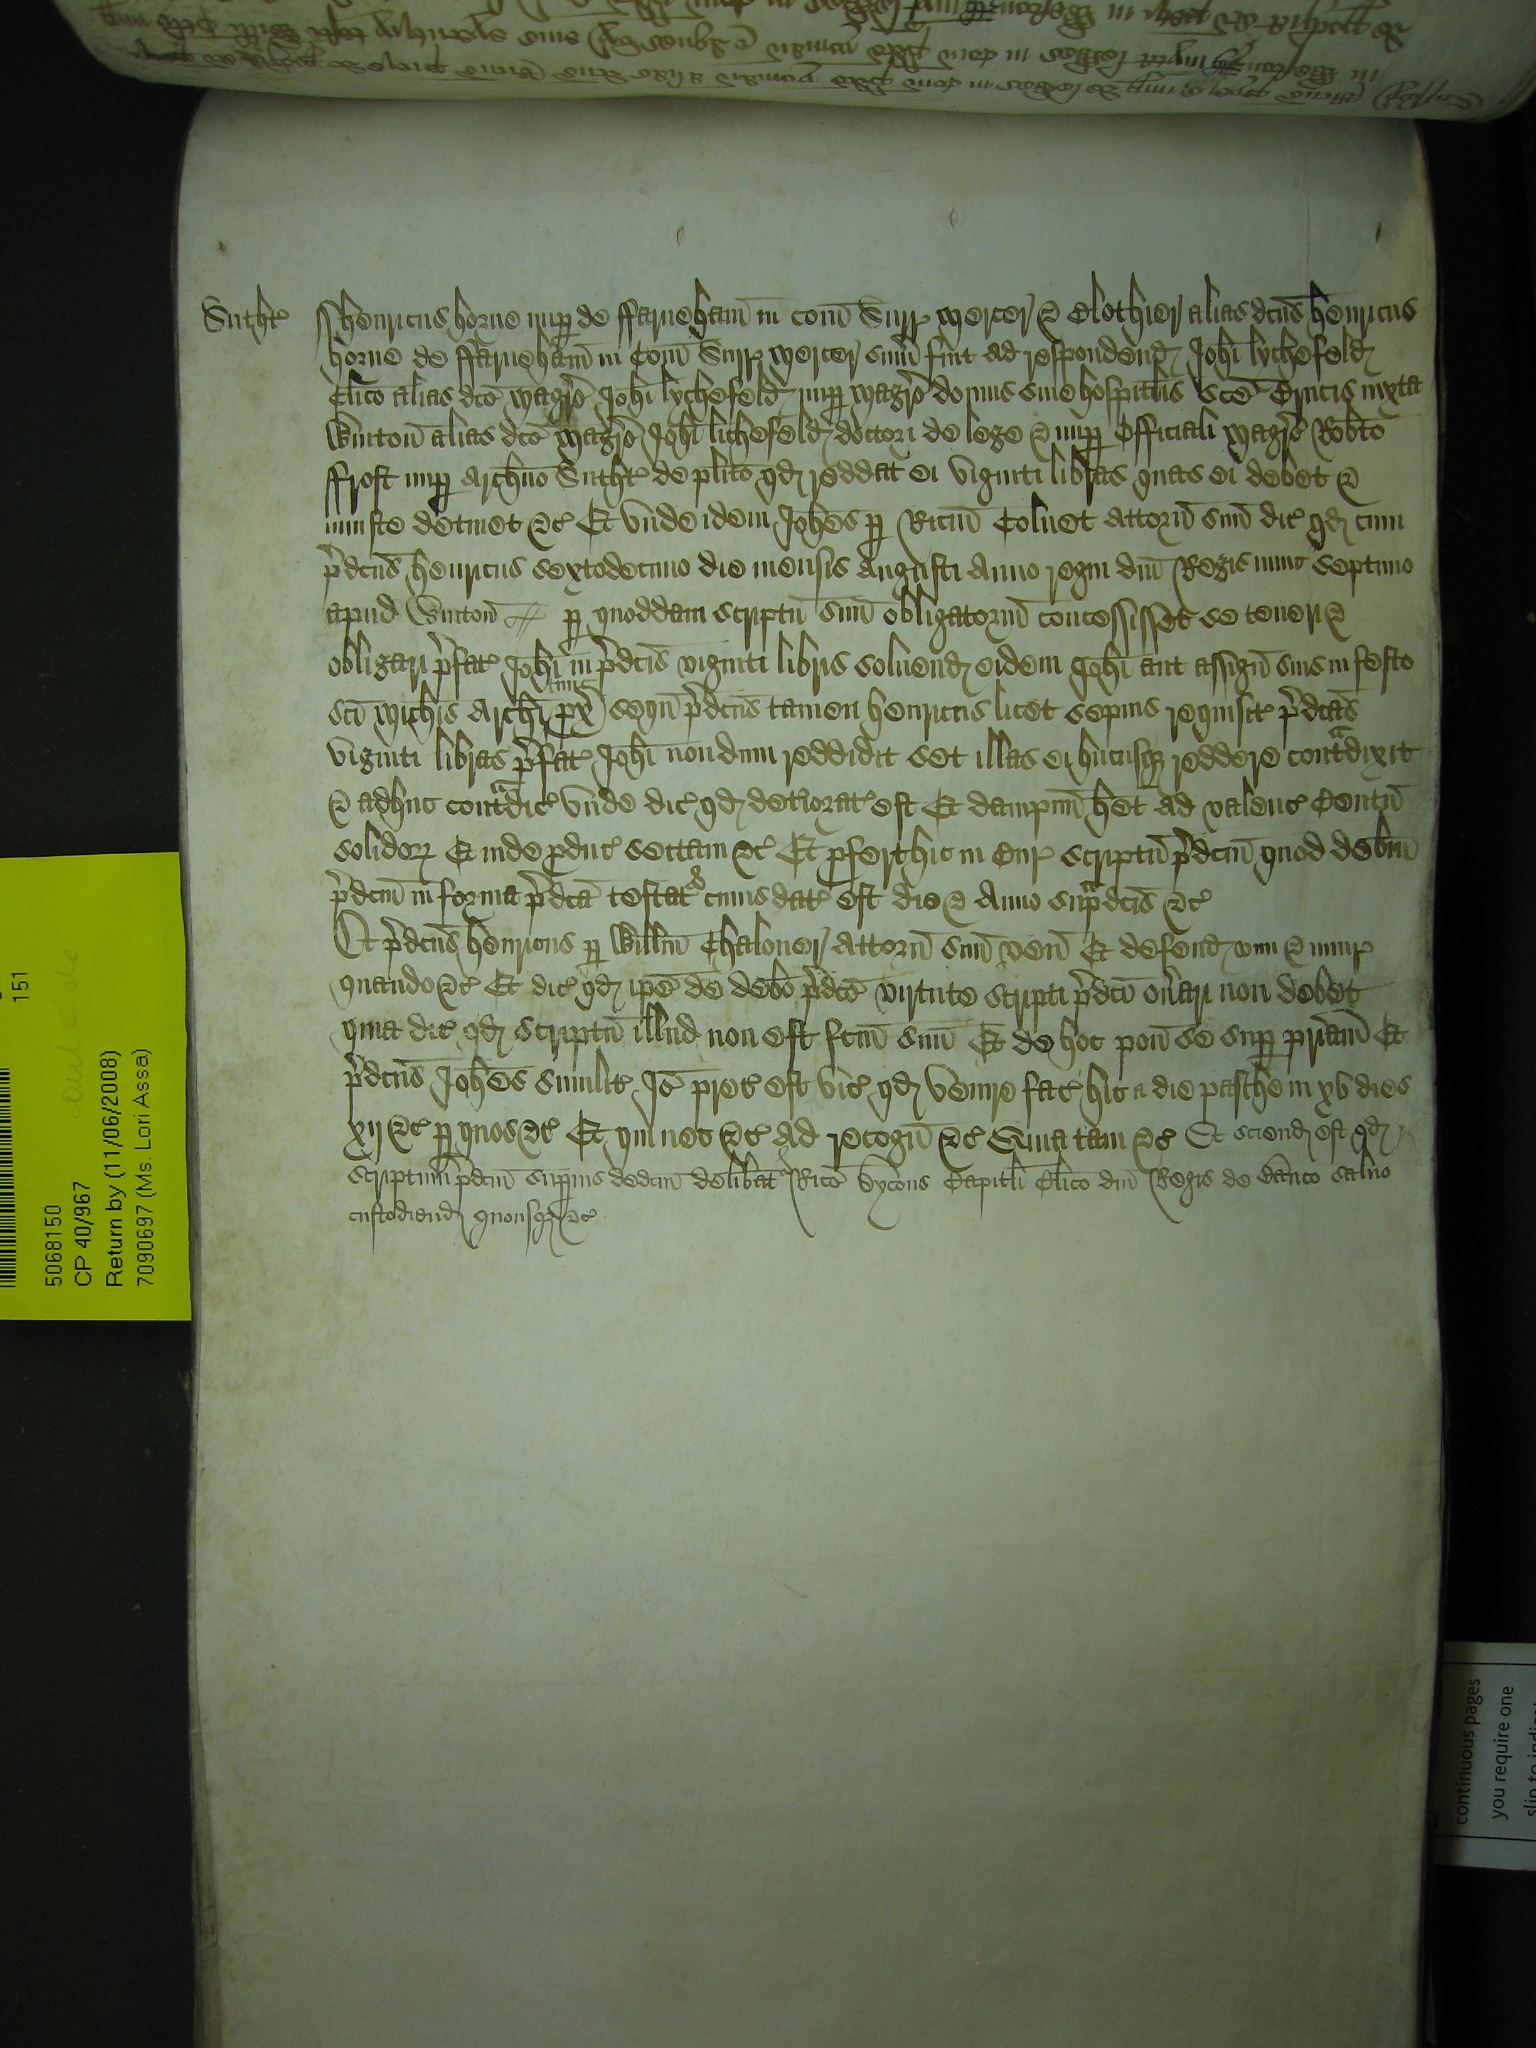 Sutht'
Henricus Horne nup' de Farneham in Com' Surr' Mercer & Clothier alias dcus Henricus
Horne de Farneham in Com' Surr' Mercer sum' fuit ad respondend' Johi Lychefeld'
Clico alias dco Magro Johi Lychefeld' nup' Magro domus sive hospitalis sce Crucis iuxta
Winton' alias dco Magro Johi Lichefeld' doctori de lege & nup' Officiali Magri Robto
Frost nup' Archno Sutht' de plito qd' reddat ei viginti libras quas ei debet &
iniuste detinet &c' Et unde idem Johes p' Ricum Colnet attorn' suu' dic' qd' cum
p'dcus Henricus sextodecimo die mensis Augusti Anno regni dni Regis nunc septimo
apud Winton' p' quoddam scriptu' suu' obligatoriu' concessisset se teneri &
obligari p'fat' Johi in p'dcis viginti libris solvend' eidem Johi aut assign' suis in festo
sci Michis Archi tunc px' sequ' p'dcus tamen Henricus licet sepius requisit' p'dcas
viginti libras p'fat' Johi nondum reddidit set illas ei hucusq' reddere contradixit
& adhuc contradic' unde dic' qd' det'iorat' est Et dampnu' het ad valenc' Centu'
solidor' Et inde p'duc' sectam &c' Et p'fert hic in Cur' scriptu' p'dcm quod debitu'
p'dcm in forma p'dca testat' cuius dat' est die & Anno sup'dcis &c'
Et p'dcus Henricus p' Willm Chaloner attorn' suu' ven' Et defend' vim & iniur'
quando &c' Et dic' qd' ipe de debo p'dco virtute scripti p'dci on'ari non debet
quia dic' qd' scriptu' illud non est fcm suu' Et de hoc pon' se sup' priam Et
p'dcus Johes similit' Io' prec' est vic' qd' venire fac' hic a die pasche in xv dies
xij &c' p' quos &c' Et qui nec &c' Ad recogn' &c' Quia tam &c' Et sciend' est qd'
scriptum p'dcm superius dedcm delibat' Rico Bycons Capitli Clico dni Regis de Banco salvo
custodiend' quousq' &c'
151
5068150
CP 40/967
Return by (11/06/2008)
7090697 (Ms. Lori Assa)
continuous pages
you require one